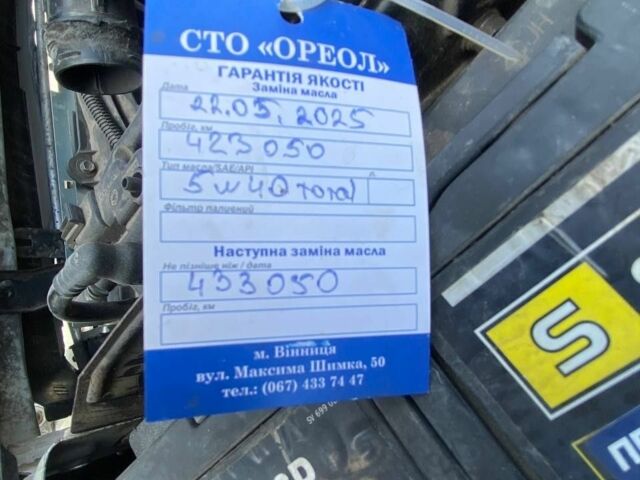 СТО «ОРЕОЛ»
ГАРАНТІЯ ЯКОСТІ
Заміна масла
Дата
22.05.2025
Пробіг, км
423050
Тип масла/SAE/API
5w40 total
Фільтр паливний
Наступна заміна масла
Не пізніше ніж / дата
433050
Пробіг, км
м. Вінниця
вул. Максима Шимка, 50
тел.: (067) 433 74 47